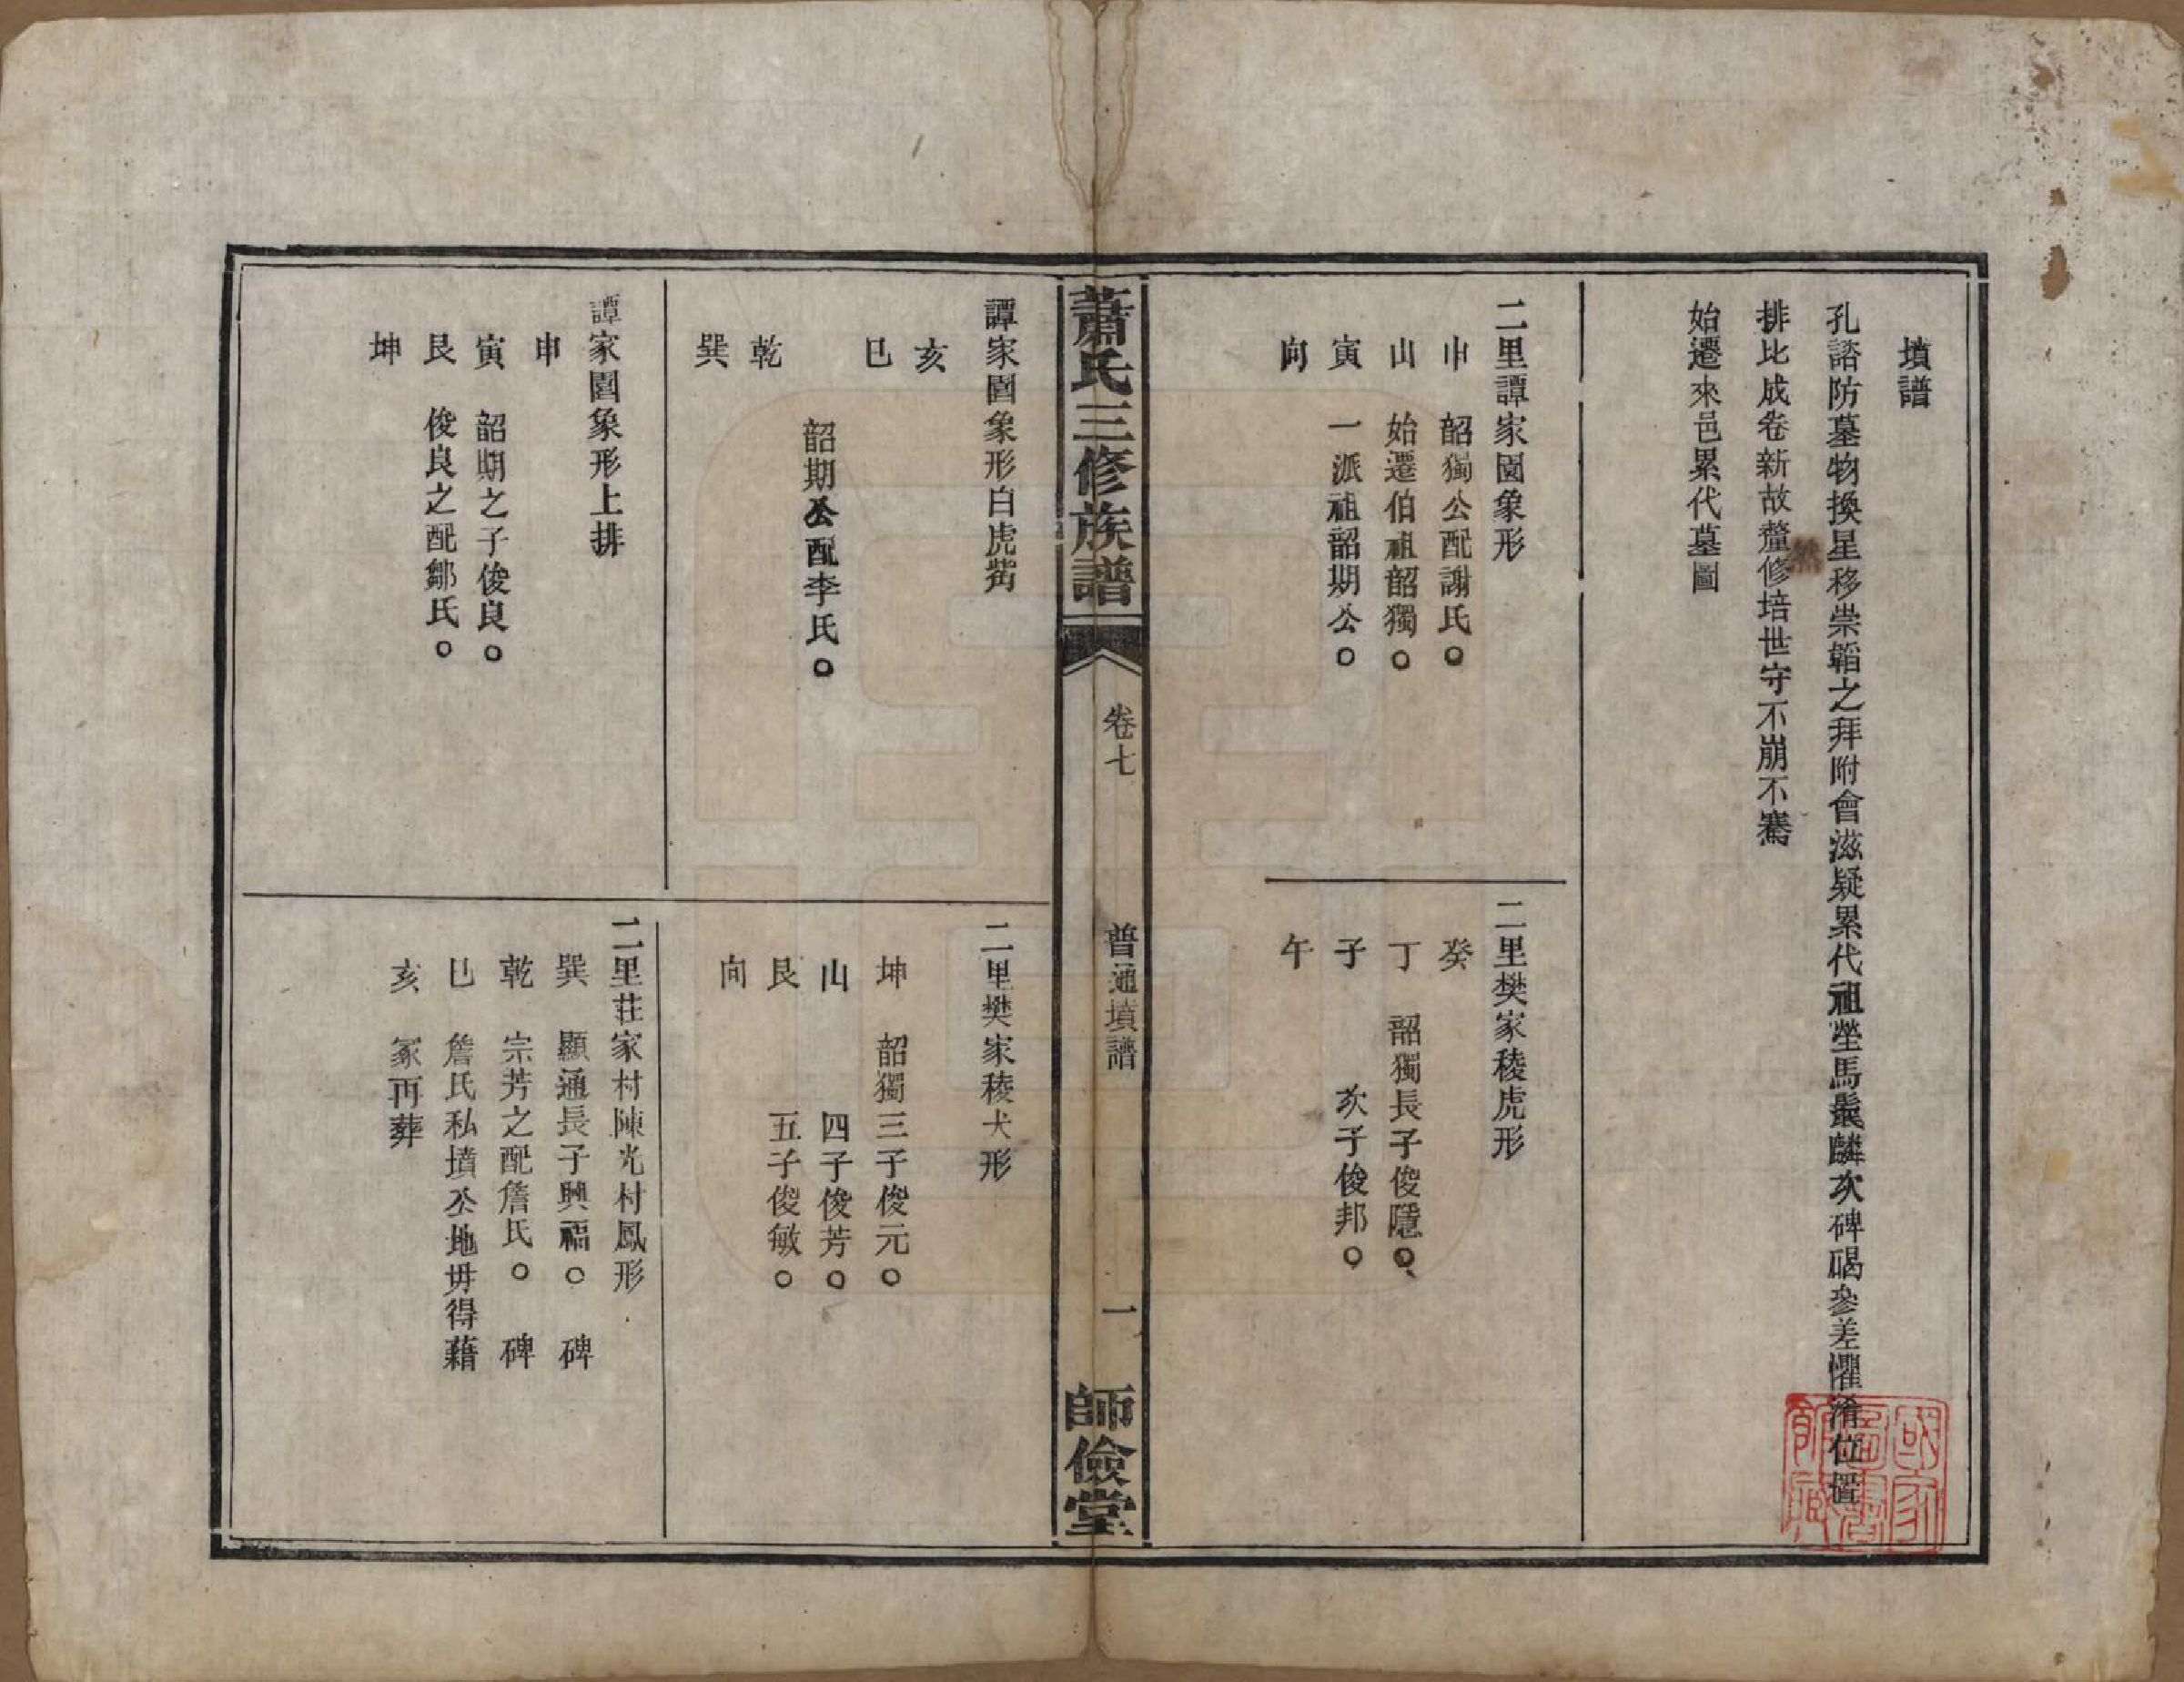 墳譜
孔諮防墓物換星移崇韜之拜附會滋疑累代祖塋馬鬣麟次碑碣參差懼淆位置
排比成卷新故釐然修培世守不崩不騫
始遷來邑累代墓圖
二里譚家園象形
申 韶獨公配謝氏○
山 始遷伯祖韶獨○
寅 一派祖韶期公○
向
二里樊家稜虎形
癸
丁 韶獨長子俊隱○
子 次子俊邦○
午
蕭氏三修族譜
卷七
普通墳譜
一
師儉堂
譚家園象形白虎嘴
亥
巳
韶期公配李氏○
乾
巽
二里樊家稜犬形
坤 韶獨三子俊元○
山 四子俊芳○
艮 五子俊敏○
向
譚家園象形上排
申
寅 韶期之子俊良○
艮 俊良之配鄒氏○
坤
二里莊家村陳光村鳳形
巽 顯通長子興福○ 碑
乾 宗芳之配詹氏○ 碑
巳 詹氏私墳公地毋得藉
亥 冢再葬
國家圖書館藏